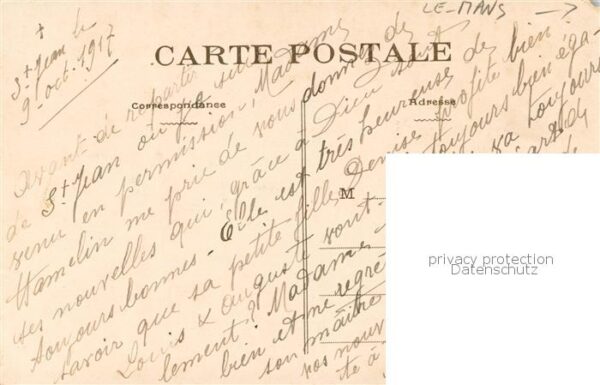 LE-MANS
+
St Jean le
9 oct. 1917
CARTE POSTALE
Correspondance
Adresse
M
Avant de repartir
de St Jean où je suis
venu en permission, Madame
Hamelin me prie de vous donner de
ses nouvelles qui, grâce à Dieu sont
toujours bonnes. Elle est très heureuse de
savoir que sa petite fille Denise profite bien.
Louis & Auguste vont toujours bien éga-
lement? Madame va toujours
bien et ne regré
son maître
vos nouv
te à
privacy protection
Datenschutz